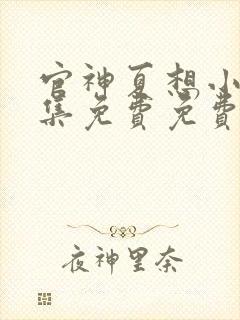 官神夏想小
集免费免费
夜神里奈